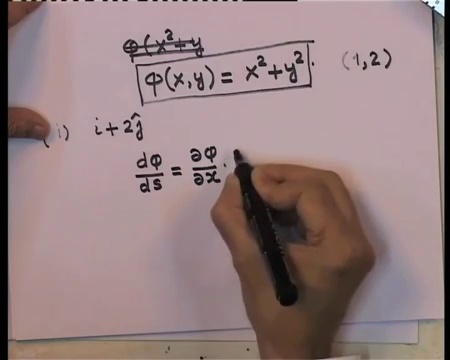 φ(x²+y
φ(x,y) = x²+y². (1,2)
(i) i+2ĵ
dφ/ds = ∂φ/∂x ·